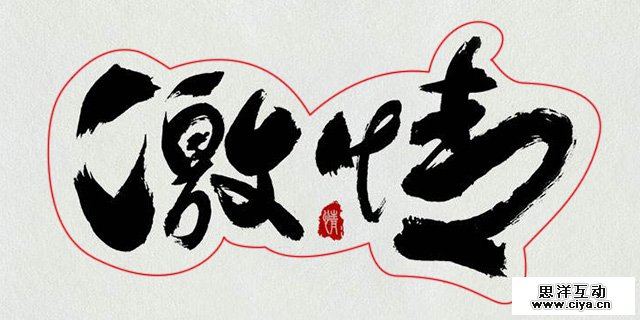 激情
情
思洋互动
www.ciya.cn